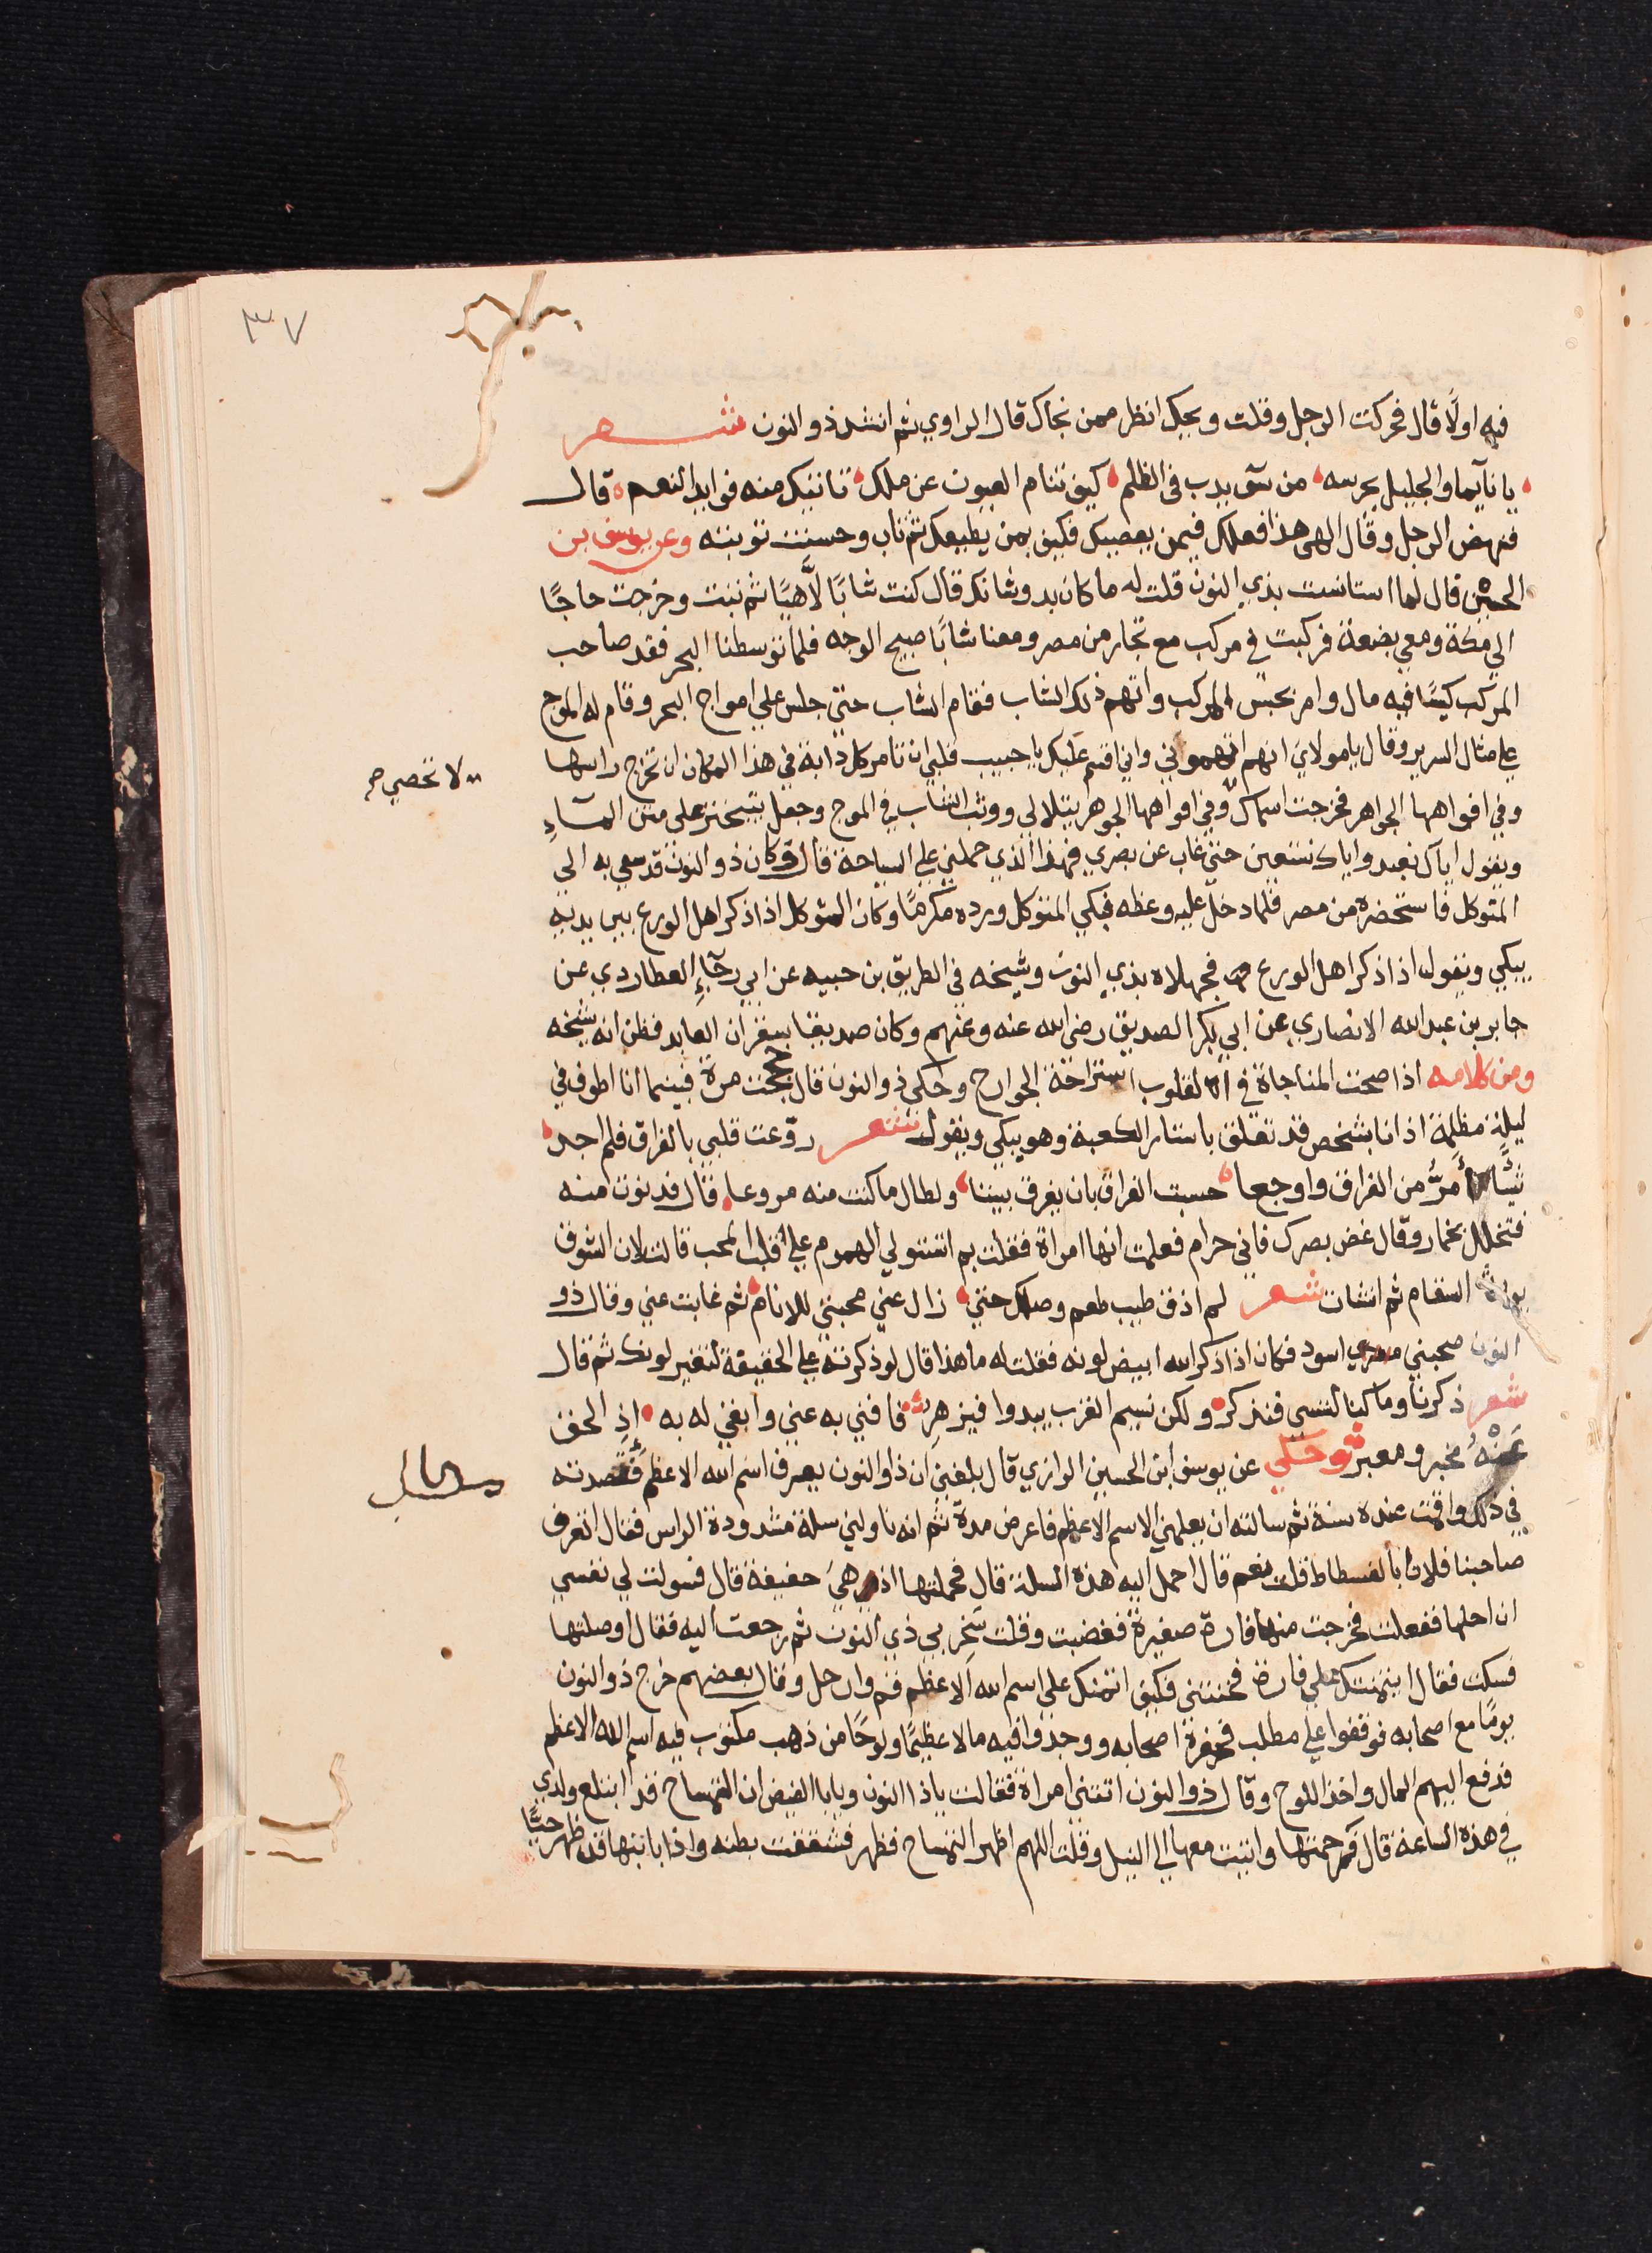 ٣٧
فيه اولًا قال فحركت الرجل وقلت ويحك انظر ممن نجاك قال الراوي ثم انشد ذو النون شعر
يا نايما والجليل يحرسه من سوّ يدب فى الظلم كيف تنام العيون عن ملك تاتيك منه فوايد النعم قال
فنهض الرجل وقال الهى هذا فعلك فيمن يعصيك فكيف بمن يطيعك ثم تاب وحسنت توبته وعن يوسف بن
الحسين قال لما استانست بذي النون قلت له ما كان بدو شانك قال كنت شابًا لاهيًا ثم تبت وخرجت حاجًا
الي مكة ومعي بضعة فركبت في مركب مع تجار من مصر ومعنا شابًا صبيح الوجه فلما توسطنا البحر فقد صاحب
المركب كيسًا فيه مال وامر بحبس المركب واتهم ذلك الشاب فقام الشاب حتى جلس علي امواج البحر وقام له الموج
علي مثال السرير وقال يا مولاي انهم اتهموني واني اقسم عليك يا حبيب قلبي ان تامر كل دابة في هذا المكان ان تخرج راسها
لا تحصي
وفي افواهها الجواهر فخرجت اسماك وفي افواهها الجوهر يتلالي ووثب الشاب في الموج وجعل يتبختر على متن المآءِ
ويقول اياك نعبد واياك نستعين حتى غاب عن بصري فهذا الذي حملني علي السياحة قال وكان ذو النون قد سعي به الي
المتوكل فاستحضره من مصر فلما دخل عليه وعظه فبكي المتوكل ورده مكرمًا وكان المتوكل اذا ذكر اهل الورع بين يديه
يبكي ويقول اذا ذكر اهل الورع فحيهلاه بذي النون وشيخه في الطريق بن حبيبه عن ابي رجآءِ العطاردي عن
جابر بن عبد الله الانصاري عن ابي بكر الصديق رضي الله عنه وعنهم وكان صديقا بسفران العابد فظن انه شيخه
ومن كلامه اذا صحت المناجاة في القلوب استراحة الجوارح وحكي ذو النون قال حججت مرة فبينما انا اطوف في
ليلة مظلمة اذ انا بشخص قد تعلق باستار الكعبة وهو يبكي ويقول شعر روّعت قلبي بالفراق فلم اجد
شيئًا أمرُّ من الفراق واوجعا حسبت الفراق بان يفرق بيننا ولطال ما كنت منه مروعا قال فدنوت منه
فتخلل بخمار وقال غض بصرك فاني حرام فعلمت انها امراة فقلت بم استولي الهموم علي قلب المحب قالت لان الشوق
يورث السقام ثم انشات شعر لم اذق طيب طعم وصلك حتى زال عني محبتي للانام ثم غابت عني وقال ذو
النون صحبني اسود فكان اذا ذكر الله ابيض لونه فقلت له ما هذا قال لو ذكرته علي الحقيقة لتغير لونك ثم قال
شعر ذكرنا وما كنا لننسي فنذكر ولكن نسيم القرب يبدوا فيزهر فافني به عني وابقي له به اذِ الحق
عنهُ مخبر ومعبر وحكي عن يوسف ابن الحسين الرازي قال بلغني ان ذا والنون يعرف اسم الله الاعظم فقصدته
في ذلك واقمت عنده سنة ثم سالته ان يعلمني الاسم الاعظم فاعرض مدة ثم انه ناولني سلة مشدودة الراس فقال اتعرف
صاحبنا فلانا بالفسطاط قلت نعم قال احمل اليه هذه السلة قال فحملتها اذ هيَ خفيفة قال فسولت لي نفسي
ان احلها ففعلت فخرجت منها فارة صغيرة فغضبت وقلت سَخِر بي ذي النون ثم رجعت اليه فقال اوصلتها
فسكت فقال ايتمنتك علي فارة فخنتني فكيف ائتمنك علي اسم الله الاعظم قم وارحل وقال بعضهم خرج ذو النون
يومًا مع اصحابه فوقفوا علي مطلب فحفرة اصحابه ووجدوا فيه مالا عظيمًا ولوحًا من ذهب مكتوب فيه اسم الله الاعظم
فدفع اليهم المال واخذ اللوح وقال ذو النون اتتنى امراة فقالت ياذا النون ويابا الفيض ان التمساح قد ابتلع ولدي
في هذه الساعة قال فرحمتها واتيت معها الي النيل وقلت اللهم اظهر التمساح فظهر فشققت بطنه واذا بابنها قد ظهر حيًّا